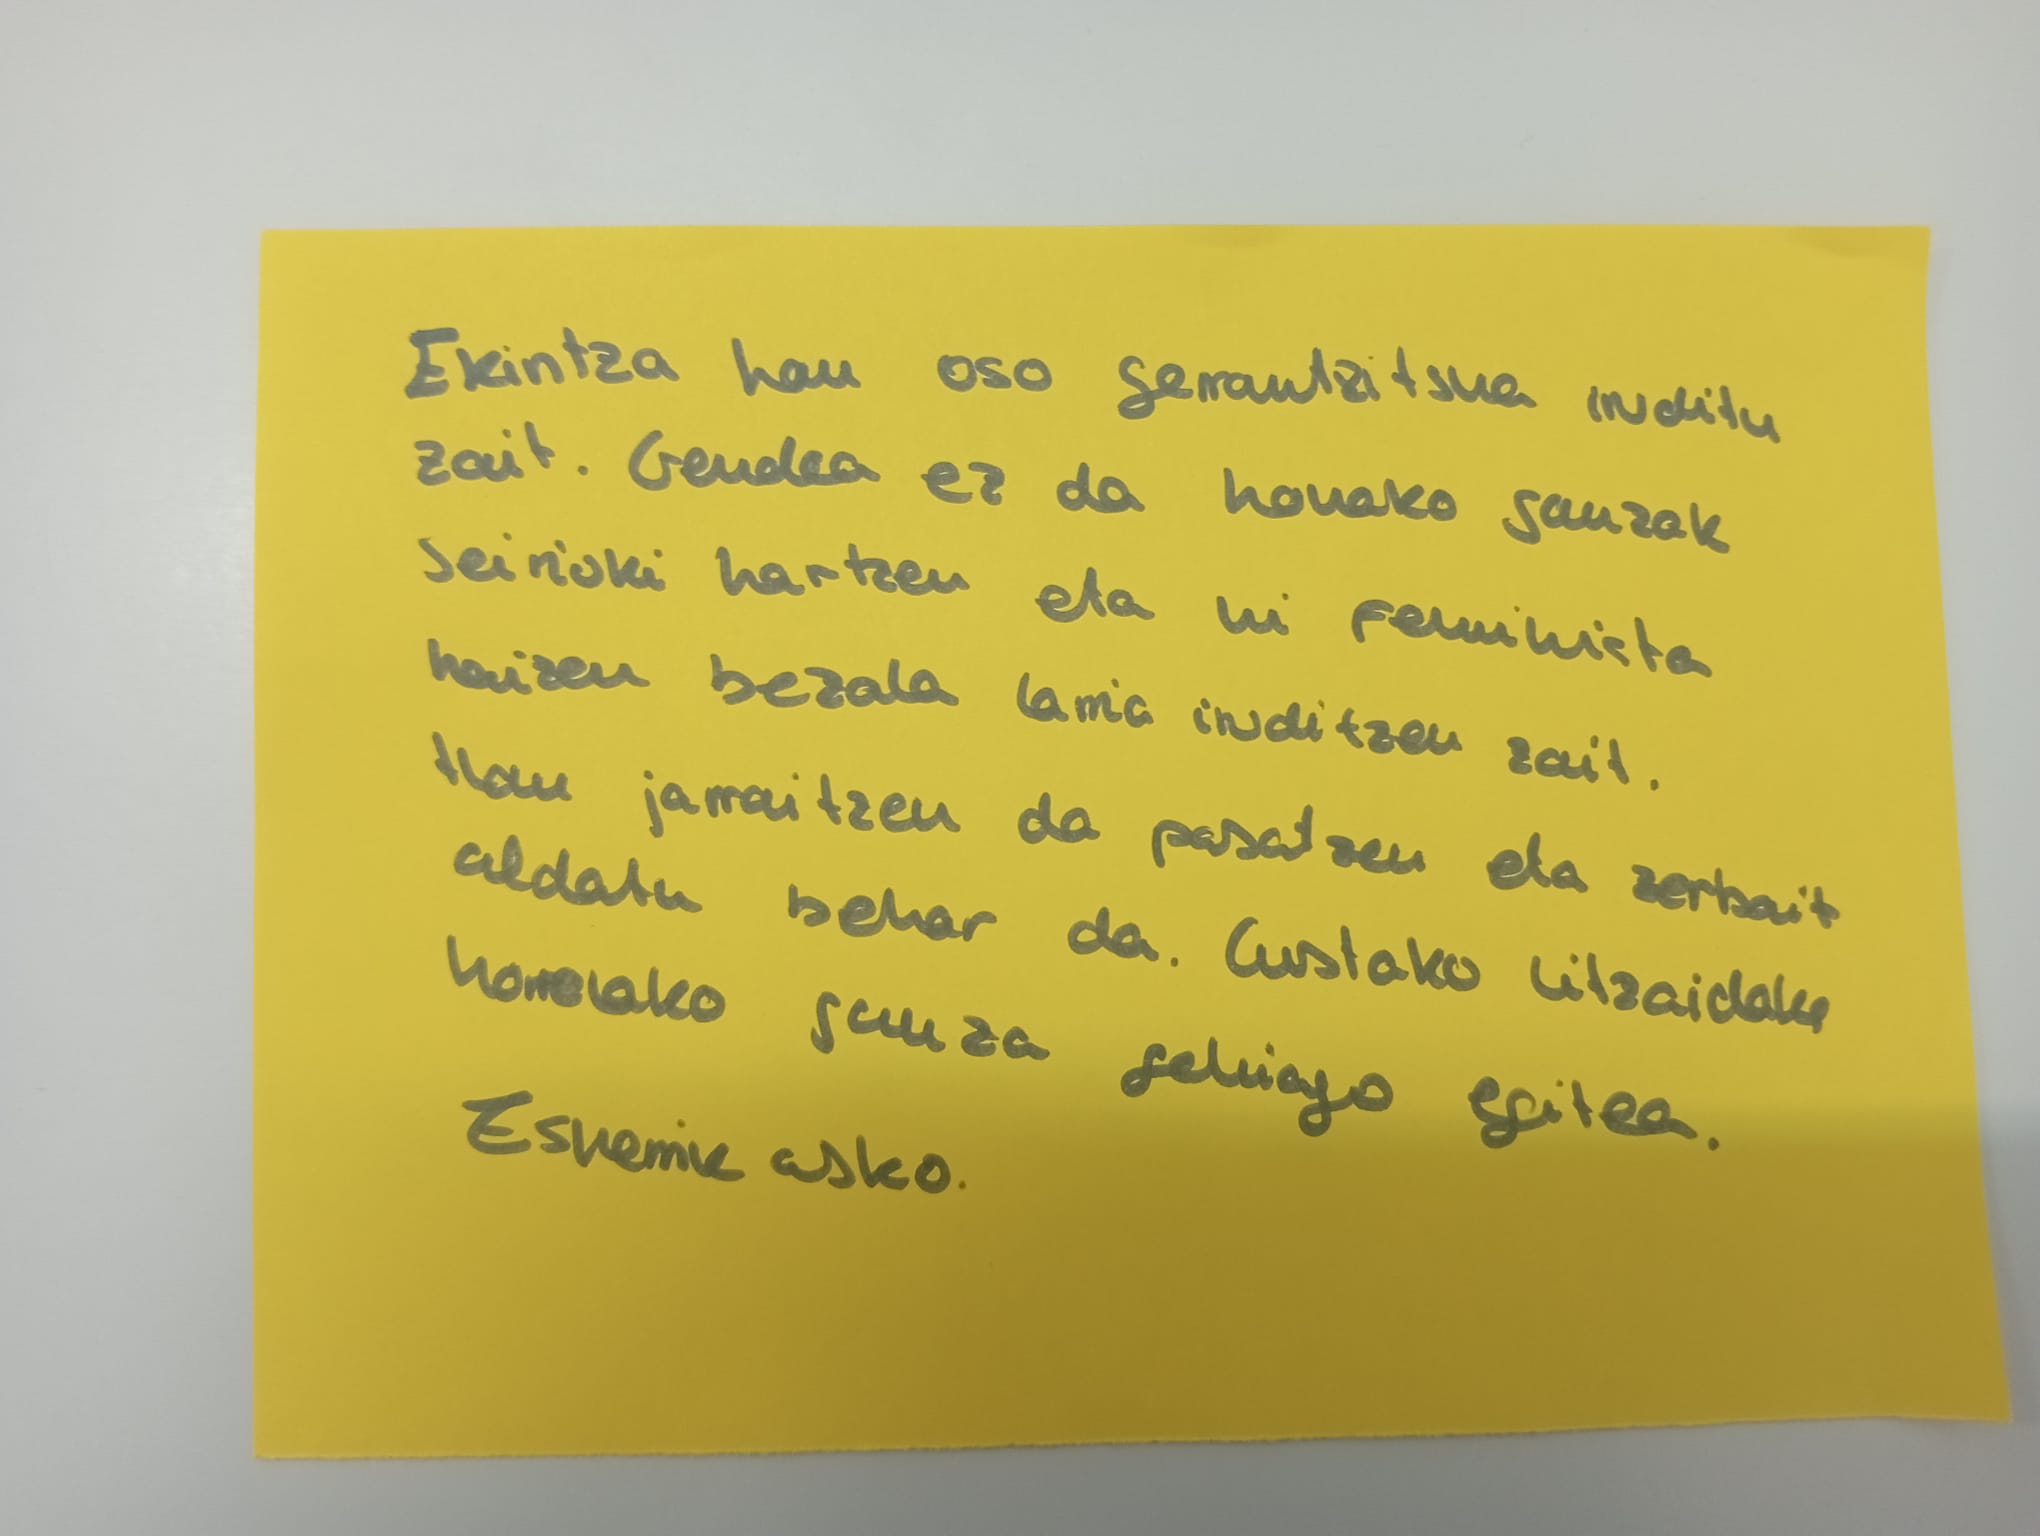 Ekintza hau oso gerrantzitsua iruditu
zait. Gendea ez da honako gauzak
seirioki hartzen eta ni feminista
naizen bezala larria iruditzen zait.
Hau jarraitzen da pasatzen eta zerbait
aldatu behar da. Gustako litzaidake
horrelako gauza gehiago egitea.
Eskerrik asko.